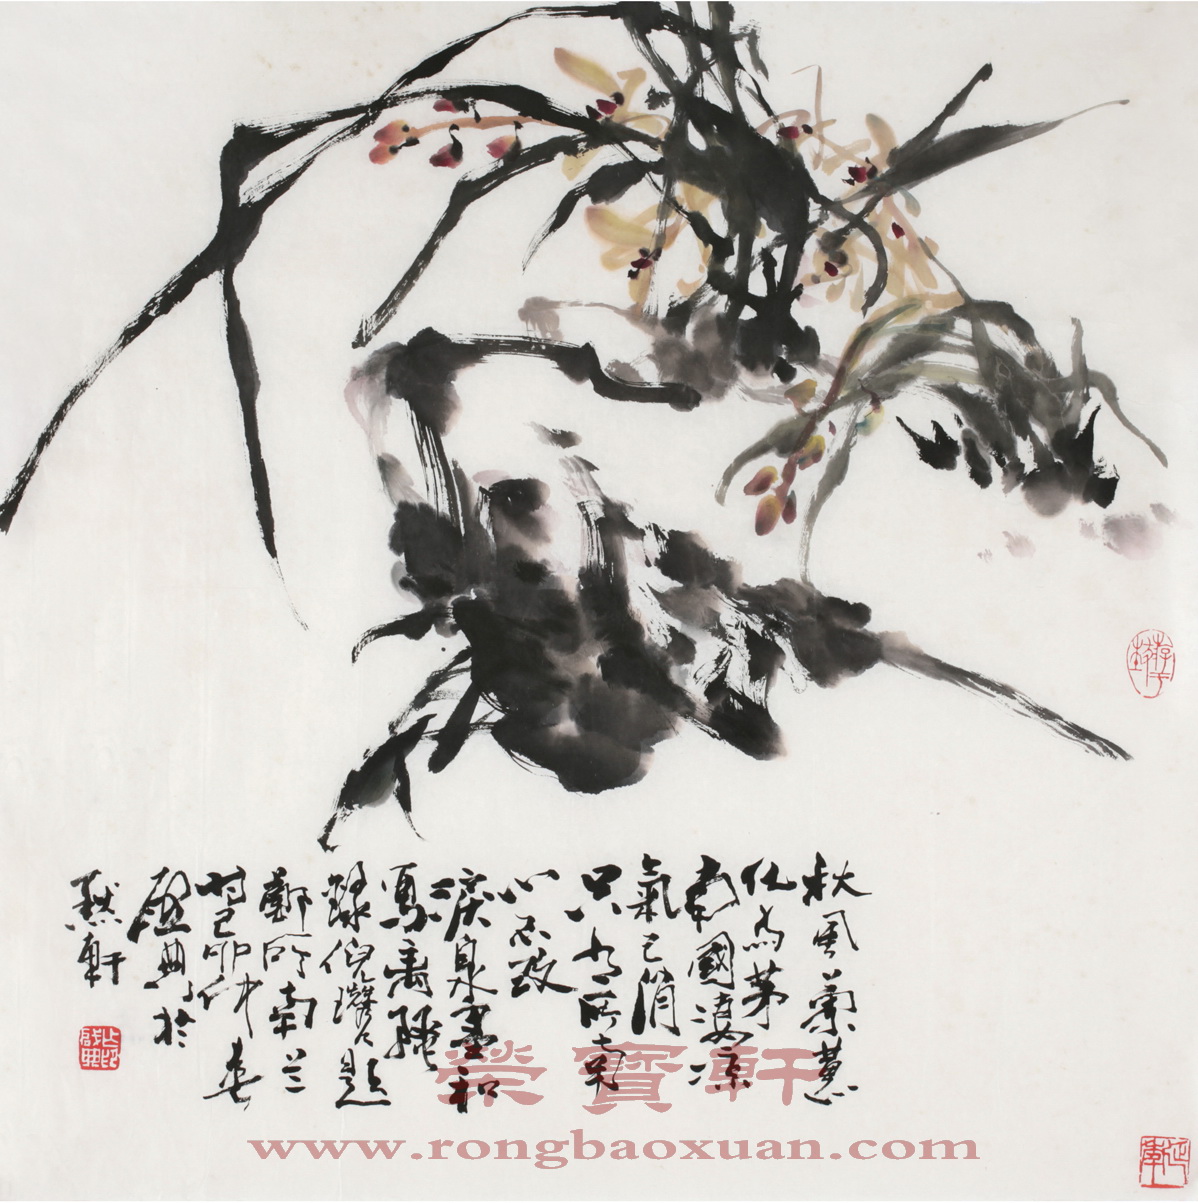 秋風蘭蕙
化為茅
南國凄涼
氣已消
只有所南
心不改
淚泉墨和
寫離騷
錄倪瓚題
鄭所南兰
時己卯仲春
啟典於
默軒
榮寶軒
www.rongbaoxuan.com